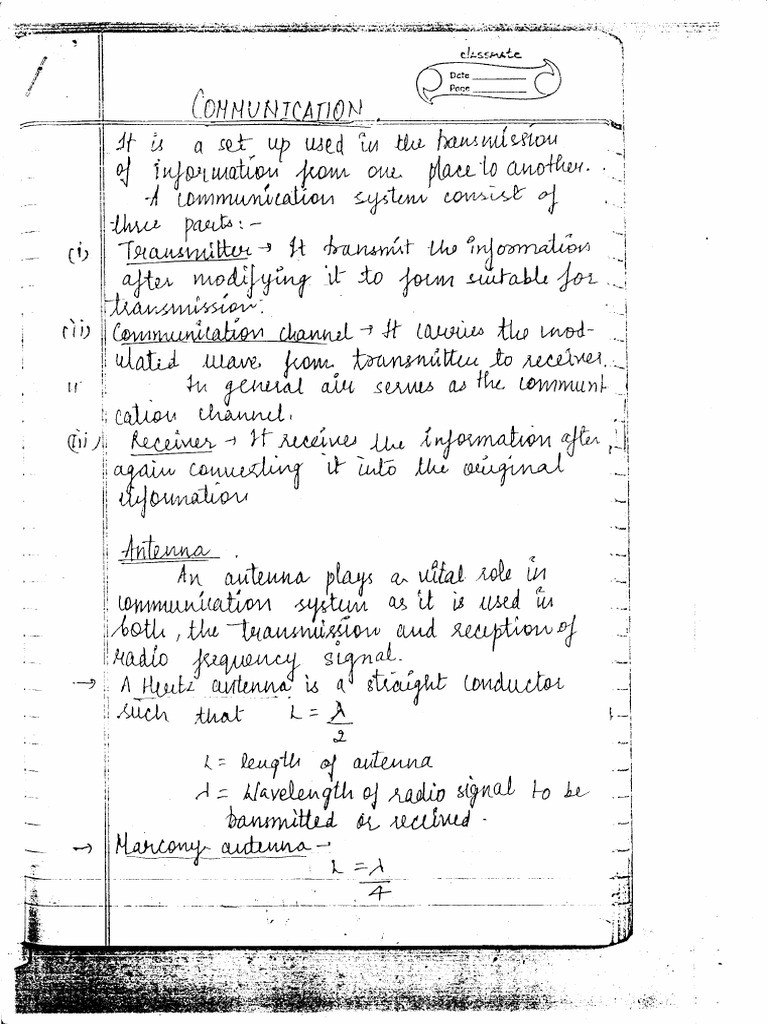 classmate
Date
Page
COMMUNICATION.
It is a set up used in the transmission
of information from one place to another.
A communication system consist of
three parts:-
(i) Transmitter → It transmit the information
after modifying it to form suitable for
transmission.
(ii) Communication channel → It carries the mod-
ulated wave from transmitter to receiver.
In general air serves as the communi
cation channel.
(iii) Receiver → It receives the information after
again converting it into the original
information
Antenna
An antenna plays a vital role in
communication system as it is used in
both, the transmission and reception of
radio frequency signal.
→ A Hertz antenna is a straight conductor
such that L = λ/2
L = length of antenna
λ = Wavelength of radio signal to be
transmitted or received.
→ Marcony antenna -
L = λ/4